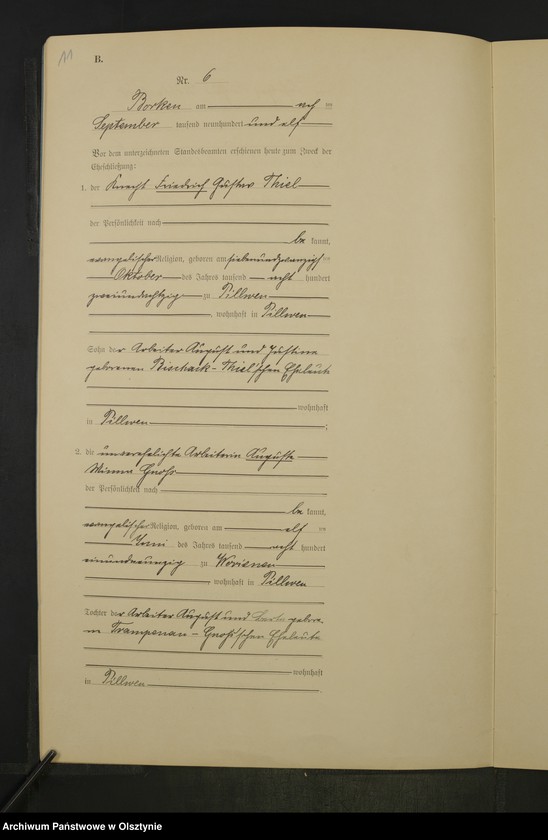 11
B.
Nr. 6
Borken am
September tausend neunhundert und elf
Vor dem unterzeichneten Standesbeamten erschienen heute zum Zweck der
Eheschließung:
1. der Knecht Friedrich Gustav Thiel
der Persönlichkeit nach
be kannt,
evangelischer Religion, geboren am siebenundzwanzigsten
Oktober des Jahres tausend acht hundert
zweiundachtzig zu Pillwen
, wohnhaft in Pillwen
Sohn der Arbeiter August und Justine
geborenen - Thiel'schen Eheleute
wohnhaft
in Pillwen ;
2. die unverehelichte Arbeiterin Auguste
Minna Gnosz
der Persönlichkeit nach
be kannt,
evangelischer Religion, geboren am elf ten
Juni des Jahres tausend acht hundert
einundneunzig zu Worienen
, wohnhaft in Pillwen
Tochter der Arbeiter August und gebore-
n Trampenau - Eheleute
wohnhaft
in Pillwen .
Archiwum Państwowe w Olsztynie